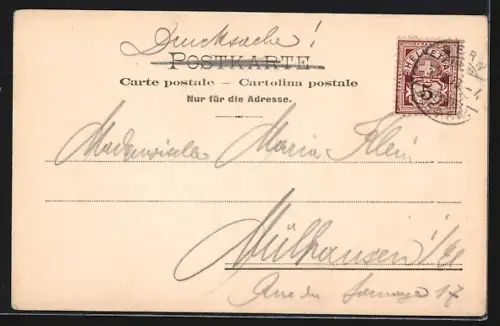 Drucksache!
POSTKARTE
Carte postale — Cartolina postale
Nur für die Adresse.
HELVETIA
5
BERN
Mademoiselle Maria Klein
Mülhausen i/E
Rue du 17